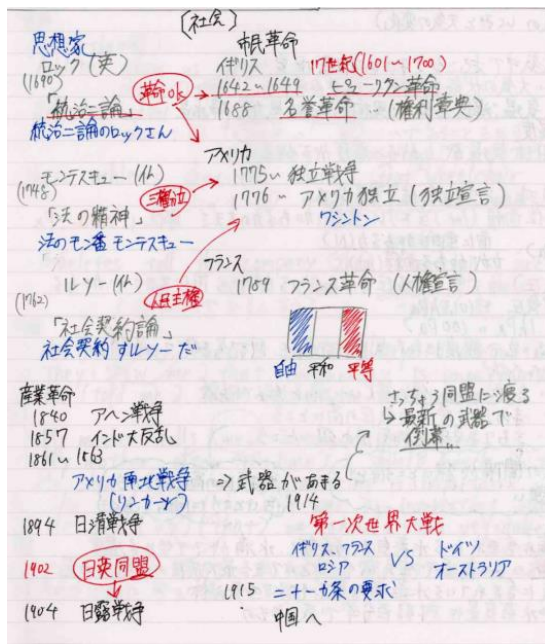 〔社会〕
思想家
市民革命
ロック(英)
(1690)
「統治二論」
統治二論のロックさん
革命ok
イギリス 17世紀(1601〜1700)
1642〜1649 ピューリタン革命
1688 名誉革命 … (権利章典)
アメリカ
1775〜 独立戦争
1776〜 アメリカ独立(独立宣言)
ワシントン
モンテスキュー(仏)
(1748)
三権分立
「法の精神」
法のモン番 モンテスキュー
フランス
1789 フランス革命(人権宣言)
ルソー(仏)
(1762)
人民主権
「社会契約論」
社会契約 すルソーだ
自由 平和 平等
産業革命
1840 アヘン戦争
1857 インド大反乱
1861〜1863
アメリカ南北戦争
(リンカーン)
⇒ 武器があまる
さっちょう同盟に渡る
↳ 最新の武器で
倒幕…
1894 日清戦争
1902 日英同盟
1904 日露戦争
1914
第一次世界大戦
イギリス、フランス
ロシア
VS
ドイツ
オーストラリア
1915 二十一カ条の要求
中国へ